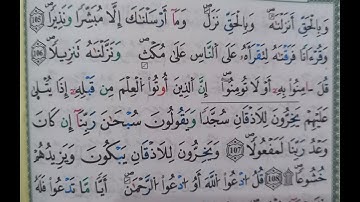 وَبِالْحَقِّ أَنزَلْنَٰهُ وَبِالْحَقِّ نَزَلَ ۗ وَمَآ أَرْسَلْنَٰكَ إِلَّا مُبَشِّرًا وَنَذِيرًا ۝105
وَقُرْءَانًا فَرَقْنَٰهُ لِتَقْرَأَهُۥ عَلَى النَّاسِ عَلَىٰ مُكْثٍ وَنَزَّلْنَٰهُ تَنزِيلًا ۝106
قُلْ ءَامِنُوا۟ بِهِۦٓ أَوْ لَا تُؤْمِنُوٓا۟ ۚ إِنَّ الَّذِينَ أُوتُوا۟ الْعِلْمَ مِن قَبْلِهِۦٓ إِذَا يُتْلَىٰ
عَلَيْهِمْ يَخِرُّونَ لِلْأَذْقَانِ سُجَّدًا وَيَقُولُونَ سُبْحَٰنَ رَبِّنَآ إِن كَانَ
وَعْدُ رَبِّنَا لَمَفْعُولًا ۝107 وَيَخِرُّونَ لِلْأَذْقَانِ يَبْكُونَ وَيَزِيدُهُمْ
خُشُوعًا ۝108 قُلِ ادْعُوا۟ اللَّهَ أَوِ ادْعُوا۟ الرَّحْمَٰنَ ۖ أَيًّا مَّا تَدْعُوا۟ فَلَهُ